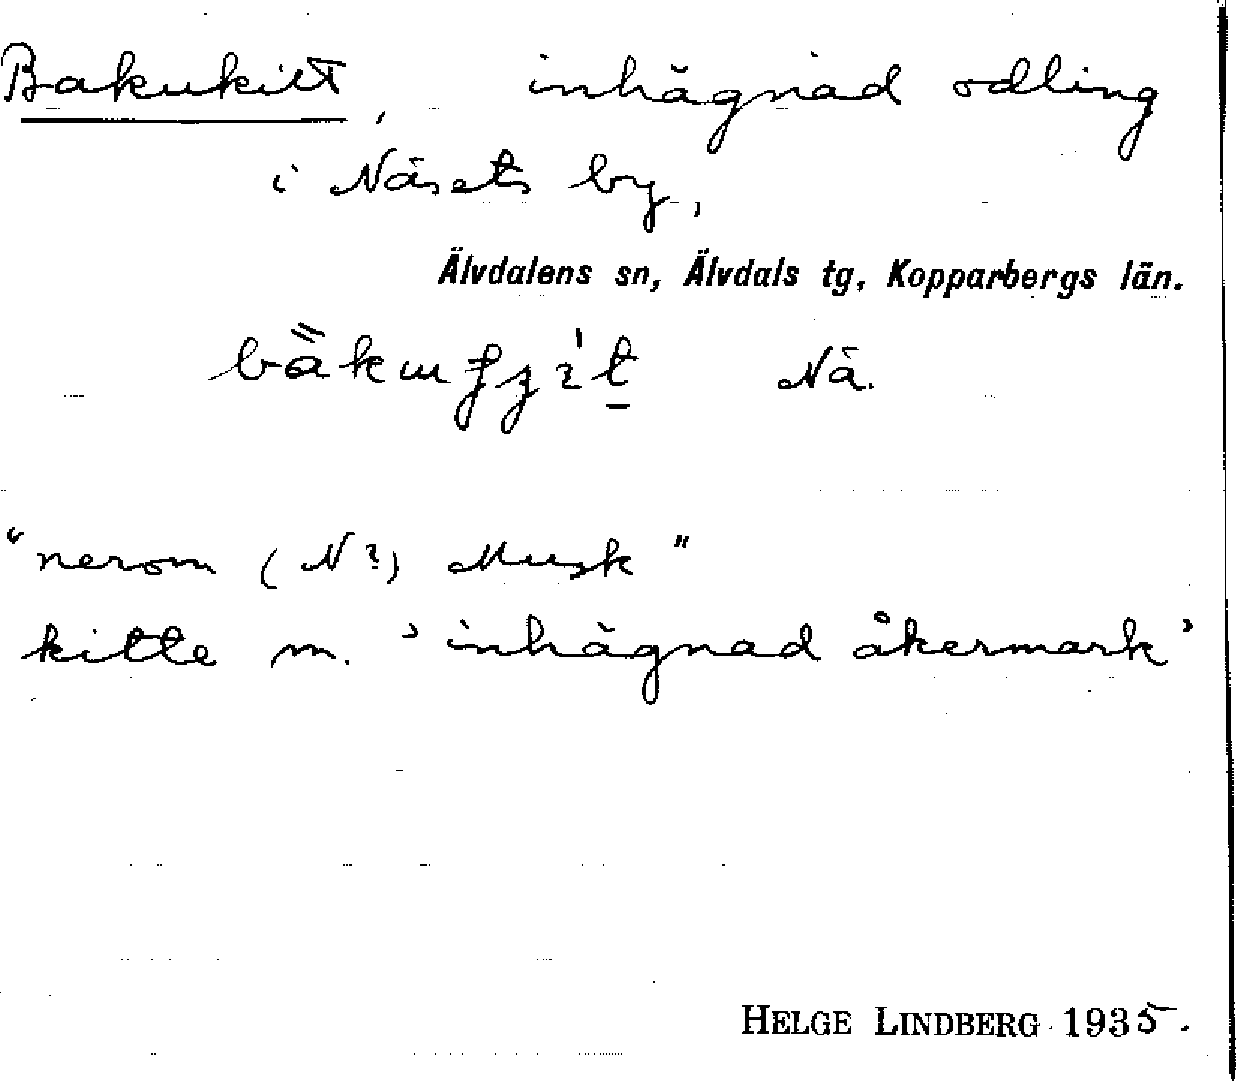 Bakukitt, inhägnad odling
i Näsets by,
Älvdalens sn, Älvdals tg, Kopparbergs län.
Nä.
"nerom (N?) Musk"
kitte m. 'inhägnad åkermark'
HELGE LINDBERG 1935.